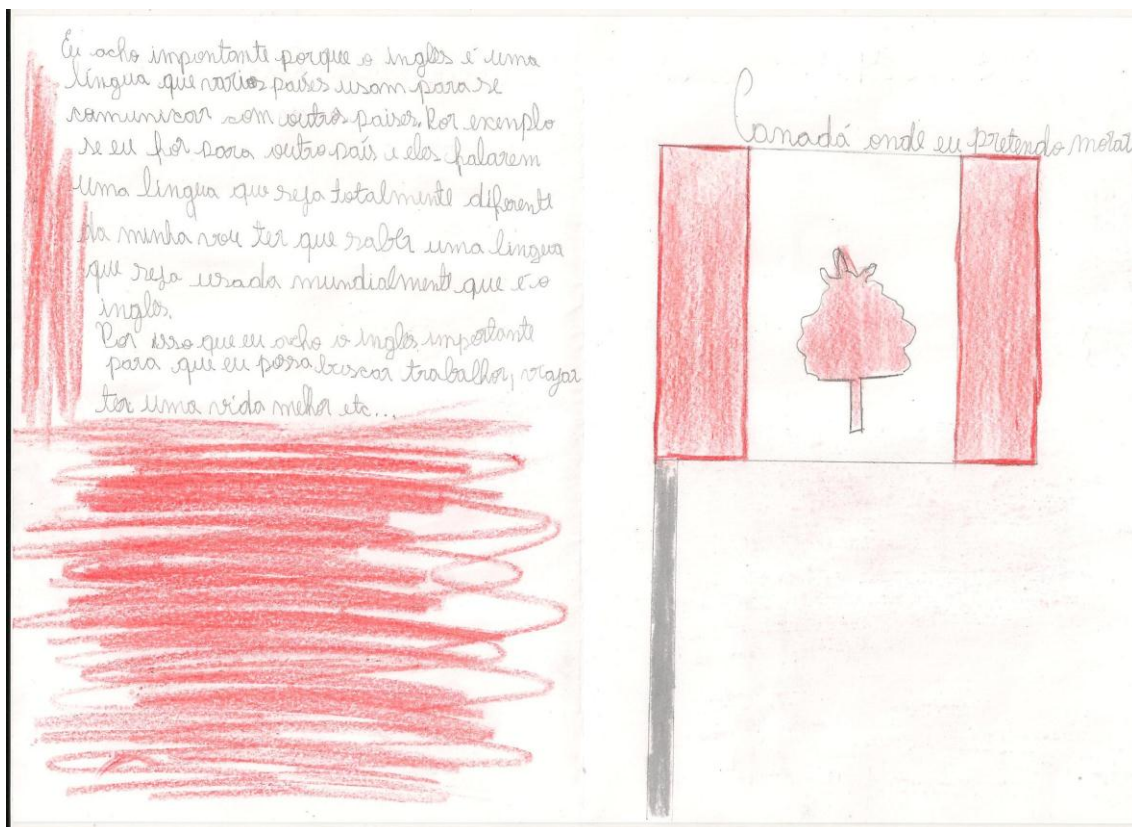 Eu acho importante porque o inglês é uma
língua que varios países usam para se
comunicar com outros paises. Por exenplo
se eu for para outro país e eles falarem
uma lingua que seja totalmente diferente
da minha vou ter que saber uma lingua
que seja usada mundialmente que é o
inglês.
Por isso que eu acho o inglês importante
para que eu possa buscar trabalhor, viajar
ter uma vida melhor etc...
Canadá onde eu pretendo morar